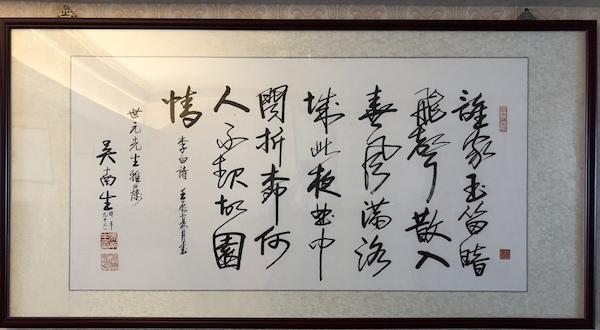 誰家玉笛暗
飛聲散入
春風滿洛
城此夜曲中
聞折柳何
人不起故園
情
李白詩 壬辰 月書
世元先生雅屬
吴南生